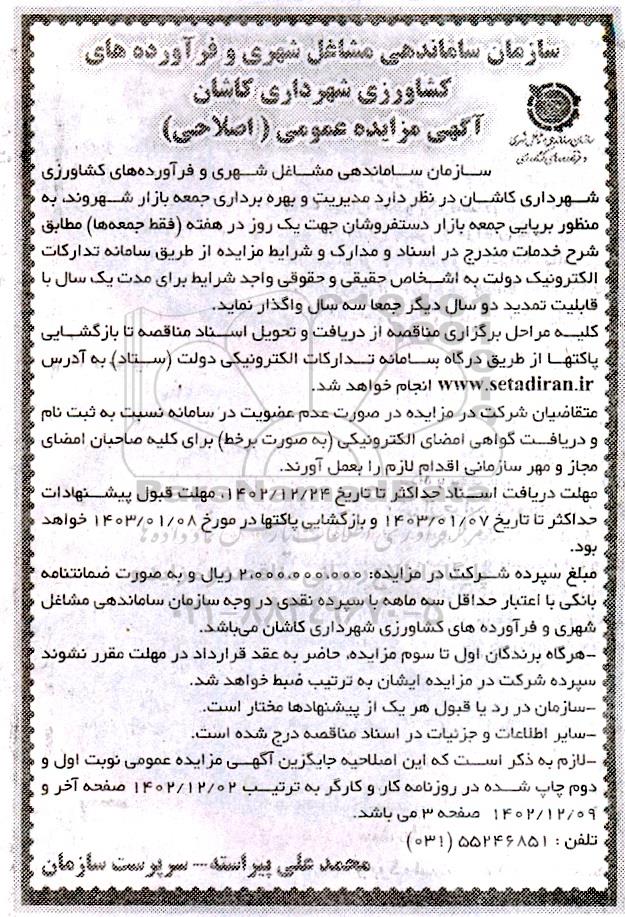 سازمان ساماندهی مشاغل شهری و فرآورده های
کشاورزی شهرداری کاشان
آگهی مزایده عمومی (اصلاحی)
سازمان ساماندهی مشاغل شهری
و فرآورده‌های کشاورزی
سازمان ساماندهی مشاغل شهری و فرآورده‌های کشاورزی
شهرداری کاشان در نظر دارد مدیریت و بهره برداری جمعه بازار شهروند، به
منظور برپایی جمعه بازار دستفروشان جهت یک روز در هفته (فقط جمعه‌ها) مطابق
شرح خدمات مندرج در اسناد و مدارک و شرایط مزایده از طریق سامانه تدارکات
الکترونیک دولت به اشخاص حقیقی و حقوقی واجد شرایط برای مدت یک سال با
قابلیت تمدید دو سال دیگر جمعا سه سال واگذار نماید.
کلیه مراحل برگزاری مناقصه از دریافت و تحویل اسناد مناقصه تا بازگشایی
پاکتها از طریق درگاه سامانه تدارکات الکترونیکی دولت (ستاد) به آدرس
www.setadiran.ir انجام خواهد شد.
متقاضیان شرکت در مزایده در صورت عدم عضویت در سامانه نسبت به ثبت نام
و دریافت گواهی امضای الکترونیکی (به صورت برخط) برای کلیه صاحبان امضای
مجاز و مهر سازمانی اقدام لازم را بعمل آورند.
مهلت دریافت اسناد حداکثر تا تاریخ ۱۴۰۲/۱۲/۲۴، مهلت قبول پیشنهادات
حداکثر تا تاریخ ۱۴۰۳/۰۱/۰۷ و بازگشایی پاکتها در مورخ ۱۴۰۳/۰۱/۰۸ خواهد
بود.
مبلغ سپرده شرکت در مزایده: ۲،۰۰۰،۰۰۰،۰۰۰ ریال و به صورت ضمانتنامه
بانکی با اعتبار حداقل سه ماهه یا سپرده نقدی در وجه سازمان ساماندهی مشاغل
شهری و فرآورده های کشاورزی شهرداری کاشان می‌باشد.
-هرگاه برندگان اول تا سوم مزایده، حاضر به عقد قرارداد در مهلت مقرر نشوند
سپرده شرکت در مزایده ایشان به ترتیب ضبط خواهد شد.
-سازمان در رد یا قبول هر یک از پیشنهادها مختار است.
-سایر اطلاعات و جزئیات در اسناد مناقصه درج شده است.
-لازم به ذکر است که این اصلاحیه جایگزین آگهی مزایده عمومی نوبت اول و
دوم چاپ شده در روزنامه کار و کارگر به ترتیب ۱۴۰۲/۱۲/۰۲ صفحه آخر و
۱۴۰۲/۱۲/۰۹ صفحه ۳ می باشد.
تلفن : ۵۵۲۴۶۸۵۱ (۰۳۱)
محمد علی پیراسته-- سرپرست سازمان